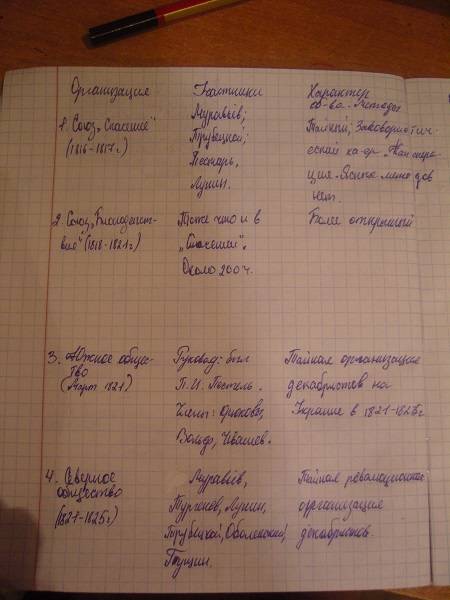 Организация Участники Характер
об-ва. Методы
1. Союз „Спасение"
(1816-1817г.)
Муравьёв;
Трубецкой;
Пестель,
Лунин.
Тайный; Заговорщич-
еский ха-ер. Конспира-
ция. Ясных методов
нет.
2. Союз „Благоденст-
вия" (1818-1821г)
Тоже что и в
„Спасении".
Около 200ч.
Более открытый
3. Южное общес-
тво
(март 1821)
Руковод: был
П.И. Пестель.
Члены: Крюковы,
Вольф, Ивашев.
Тайная организация
декабристов на
Украине в 1821-1825г.
4. Северное
общество
(1821-1825г)
Муравьёв,
Тургенев, Лунин,
Трубецкой, Оболенский,
Пущин.
Тайная революционная
организация
декабристов.